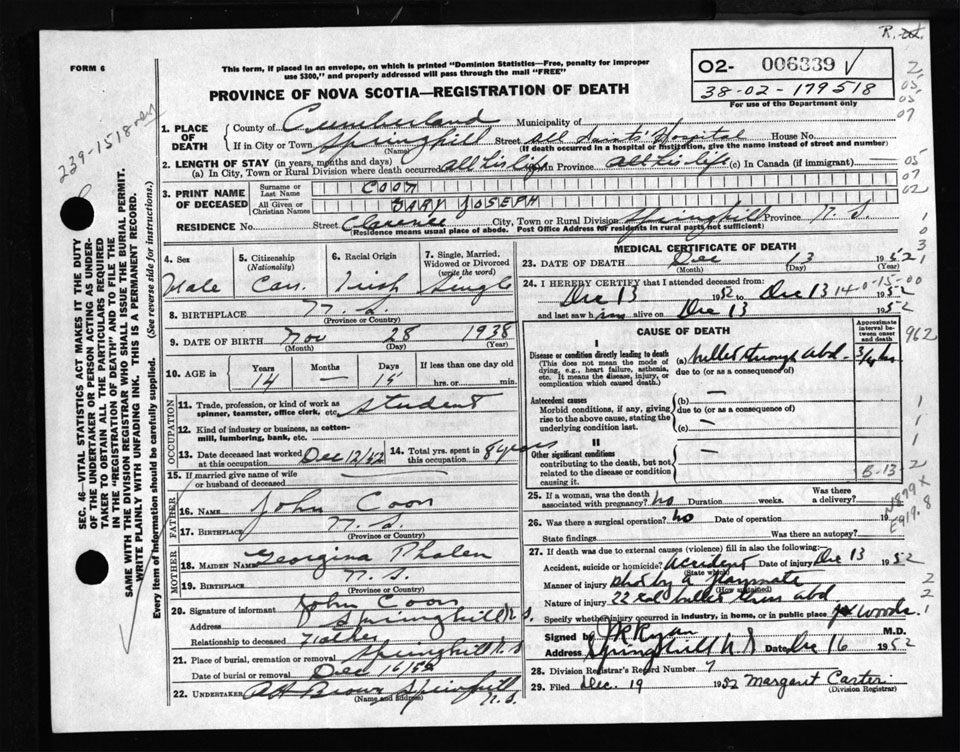 R. est.
FORM 6
This form, if placed in an envelope, on which is printed "Dominion Statistics—Free, penalty for improper
use $300," and properly addressed will pass through the mail "FREE"
PROVINCE OF NOVA SCOTIA—REGISTRATION OF DEATH
02- 006339 √
38-02-179518
For use of the Department only
239-1518
1. PLACE OF DEATH
County of Cumberland Municipality of
If in City or Town Springhill Street All Saints' Hospital House No.
(Name) (If death occurred in a hospital or institution, give the name instead of street and number)
2. LENGTH OF STAY (in years, months and days)
(a) In City, Town or Rural Division where death occurred All his life (b) In Province All his life (c) In Canada (if immigrant) —
3. PRINT NAME OF DECEASED
Surname or Last Name COON
All Given or Christian Names GARY JOSEPH
RESIDENCE No. Street Clarence City, Town or Rural Division Springhill Province N. S.
(Residence means usual place of abode. Post Office Address for residents in rural parts not sufficient)
4. Sex Male
5. Citizenship (Nationality) Can.
6. Racial Origin Irish
7. Single, Married, Widowed or Divorced (write the word) Single
8. BIRTHPLACE N. S.
(Province or Country)
9. DATE OF BIRTH Nov 28 1938
(Month) (Day) (Year)
10. AGE in Years 14 Months — Days 15 If less than one day old hrs. or min.
OCCUPATION
11. Trade, profession, or kind of work as spinner, teamster, office clerk, etc. Student
12. Kind of industry or business, as cotton-mill, lumbering, bank, etc.
13. Date deceased last worked at this occupation Dec 12/52
14. Total yrs. spent in this occupation 8 years
15. If married give name of wife or husband of deceased —
FATHER
16. NAME John Coon
17. BIRTHPLACE N. S.
(Province or Country)
MOTHER
18. MAIDEN NAME Georgina Phalen
19. BIRTHPLACE N. S.
(Province or Country)
20. Signature of informant John Coon
Address Springhill N S.
Relationship to deceased Father
21. Place of burial, cremation or removal Springhill N. S
Date of burial or removal Dec 16/52
22. UNDERTAKER A H Brown Springhill N. S.
(Name and Address)
MEDICAL CERTIFICATE OF DEATH
23. DATE OF DEATH Dec 13 1952
(Month) (Day) (Year)
24. I HEREBY CERTIFY that I attended deceased from:
Dec 13 1952 to Dec 13 1952
140-15-00
and last saw him alive on Dec 13 1952
CAUSE OF DEATH
Approximate interval between onset and death
I
Disease or condition directly leading to death
(This does not mean the mode of dying, e.g., heart failure, asthenia, etc. It means the disease, injury, or complication which caused death.)
(a) bullet through abd — 3/4 hr
due to (or as a consequence of)
Antecedent causes
Morbid conditions, if any, giving rise to the above cause, stating the underlying condition last.
(b) —
due to (or as a consequence of)
(c) —
II
Other significant conditions
contributing to the death, but not related to the disease or condition causing it.
—
B-13
25. If a woman, was the death associated with pregnancy? no Duration weeks. Was there a delivery?
26. Was there a surgical operation? no Date of operation 19
State findings Was there an autopsy?
27. If death was due to external causes (violence) fill in also the following:
Accident, suicide or homicide? Accident Date of injury Dec 13 1952
(State which)
Manner of injury shot by a playmate
(How sustained)
Nature of injury 22 cal bullet thru abd
Specify whether injury occurred in industry, in home, or in public place woods.
Signed by J R Ryan M.D.
Address Springhill N S Date Dec 16 1952
28. Division Registrar's Record Number 7
29. Filed Dec. 19 1952 Margaret Carter
(Division Registrar)
SEC. 46—VITAL STATISTICS ACT MAKES IT THE DUTY
OF THE UNDERTAKER OR PERSON ACTING AS UNDER-
TAKER TO OBTAIN ALL THE PARTICULARS REQUIRED
IN THE "REGISTRATION OF DEATH" AND TO FILE THE
SAME WITH THE DIVISION REGISTRAR WHO SHALL ISSUE THE BURIAL PERMIT.
WRITE PLAINLY WITH UNFADING INK. THIS IS A PERMANENT RECORD.
Every item of information should be carefully supplied. (See reverse side for instructions.)
2
05
03
07
05
07
02
1
0
3
1
962
1
1
1
2
N879X
E919.8
2
2
1